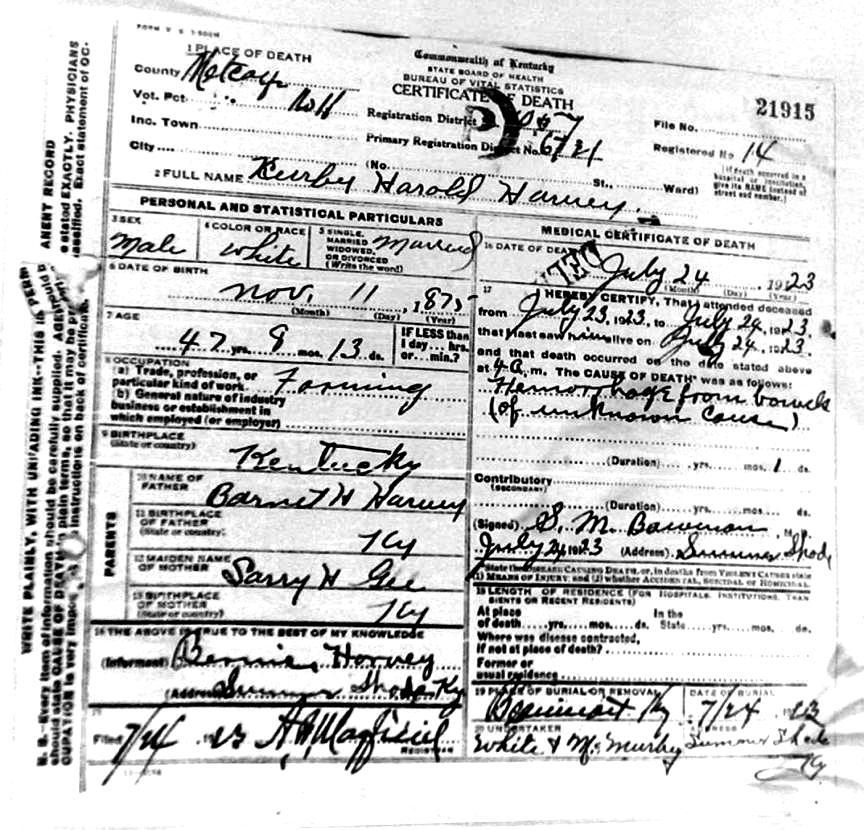 FORM V. S.
1 PLACE OF DEATH
Commonwealth of Kentucky
STATE BOARD OF HEALTH
BUREAU OF VITAL STATISTICS
CERTIFICATE OF DEATH
21915
County Metcalfe
Vot. Pct.
Registration District
File No.
Inc. Town
Primary Registration District No. 6721
Registered No 14
City
(No. St., Ward)
(If death occurred in a hospital or institution, give its NAME instead of street and number.)
2 FULL NAME Kurby Harold Harvey
PERSONAL AND STATISTICAL PARTICULARS
3 SEX
Male
4 COLOR OR RACE
White
5 SINGLE, MARRIED, WIDOWED, OR DIVORCED
(Write the word)
Married
6 DATE OF BIRTH
Nov. 11, 1875
(Month) (Day) (Year)
7 AGE
47 yrs. 8 mos. 13 ds.
IF LESS than
1 day... hrs.
or... min.?
8 OCCUPATION
(a) Trade, profession, or
particular kind of work Farming
(b) General nature of industry
business or establishment in
which employed (or employer)
9 BIRTHPLACE
(State or country)
Kentucky
PARENTS
10 NAME OF
FATHER
Barnet H Harvey
11 BIRTHPLACE
OF FATHER
(State or country)
Ky
12 MAIDEN NAME
OF MOTHER
Sarry H Gee
13 BIRTHPLACE
OF MOTHER
(State or country)
Ky
14 THE ABOVE IS TRUE TO THE BEST OF MY KNOWLEDGE
(Informant) Harvey
(Address) Summer Shade Ky
15
Filed 7/24 1923
REGISTRAR
MEDICAL CERTIFICATE OF DEATH
16 DATE OF DEATH
July 24 1923
(Month) (Day) (Year)
17 I HEREBY CERTIFY, That I attended deceased
from July 23, 1923, to July 24, 1923,
that I last saw him alive on July 24, 1923,
and that death occurred on the date stated above
at 4 A. m. The CAUSE OF DEATH was as follows:
Hemorrhage from bowels
(of unknown cause)
(Duration) yrs. mos. 1 ds.
Contributory
(SECONDARY)
(Duration) yrs. mos. ds.
(Signed) S. M. Bowman
July 24 1923 (Address) Summer Shade
State the DISEASE CAUSING DEATH, or, in deaths from VIOLENT CAUSES state
(1) MEANS OF INJURY; and (2) whether ACCIDENTAL, SUICIDAL OR HOMICIDAL.
18 LENGTH OF RESIDENCE (FOR HOSPITALS, INSTITUTIONS, TRANSIENTS OR RECENT RESIDENTS)
At place
of death yrs. mos. ds.
In the
State yrs. mos. ds.
Where was disease contracted,
if not at place of death?
Former or
usual residence
19 PLACE OF BURIAL OR REMOVAL
Beaumont Ky
DATE OF BURIAL
7/24 1923
20 UNDERTAKER
White & McMurtry
ADDRESS
Summer Shade
Ky
WRITE PLAINLY, WITH UNFADING INK--THIS IS
N. B.--Every item of information should be carefully supplied.